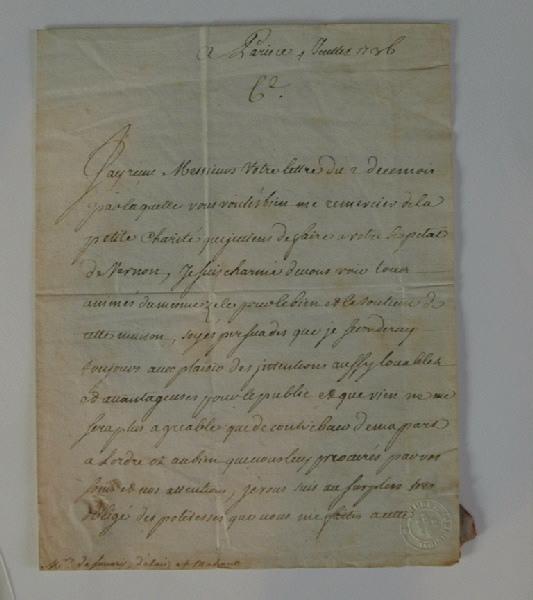 a Paris ce 4 Juillet 1736
J'ay receu Messieurs Votre lettre du 2 de ce mois
par laquelle vous voulés bien me remercier de la
petite Charité que je viens de faire a votre hopital
de Vernon, Je suis charmé de vous voir tous
animés du meme zele pour le bien et le soutien de
cette maison, soyés persuadés que je seconderay
toujours avec plaisir des intentions aussy louables
et avantageuses pour le public et que rien ne me
sera plus agreable que de contribuer de ma part
a l'ordre et au bien que vous leur procurés par vos
soins et vos attentions, je vous suis au surplus tres
obligé des politesses que vous me faites a cette